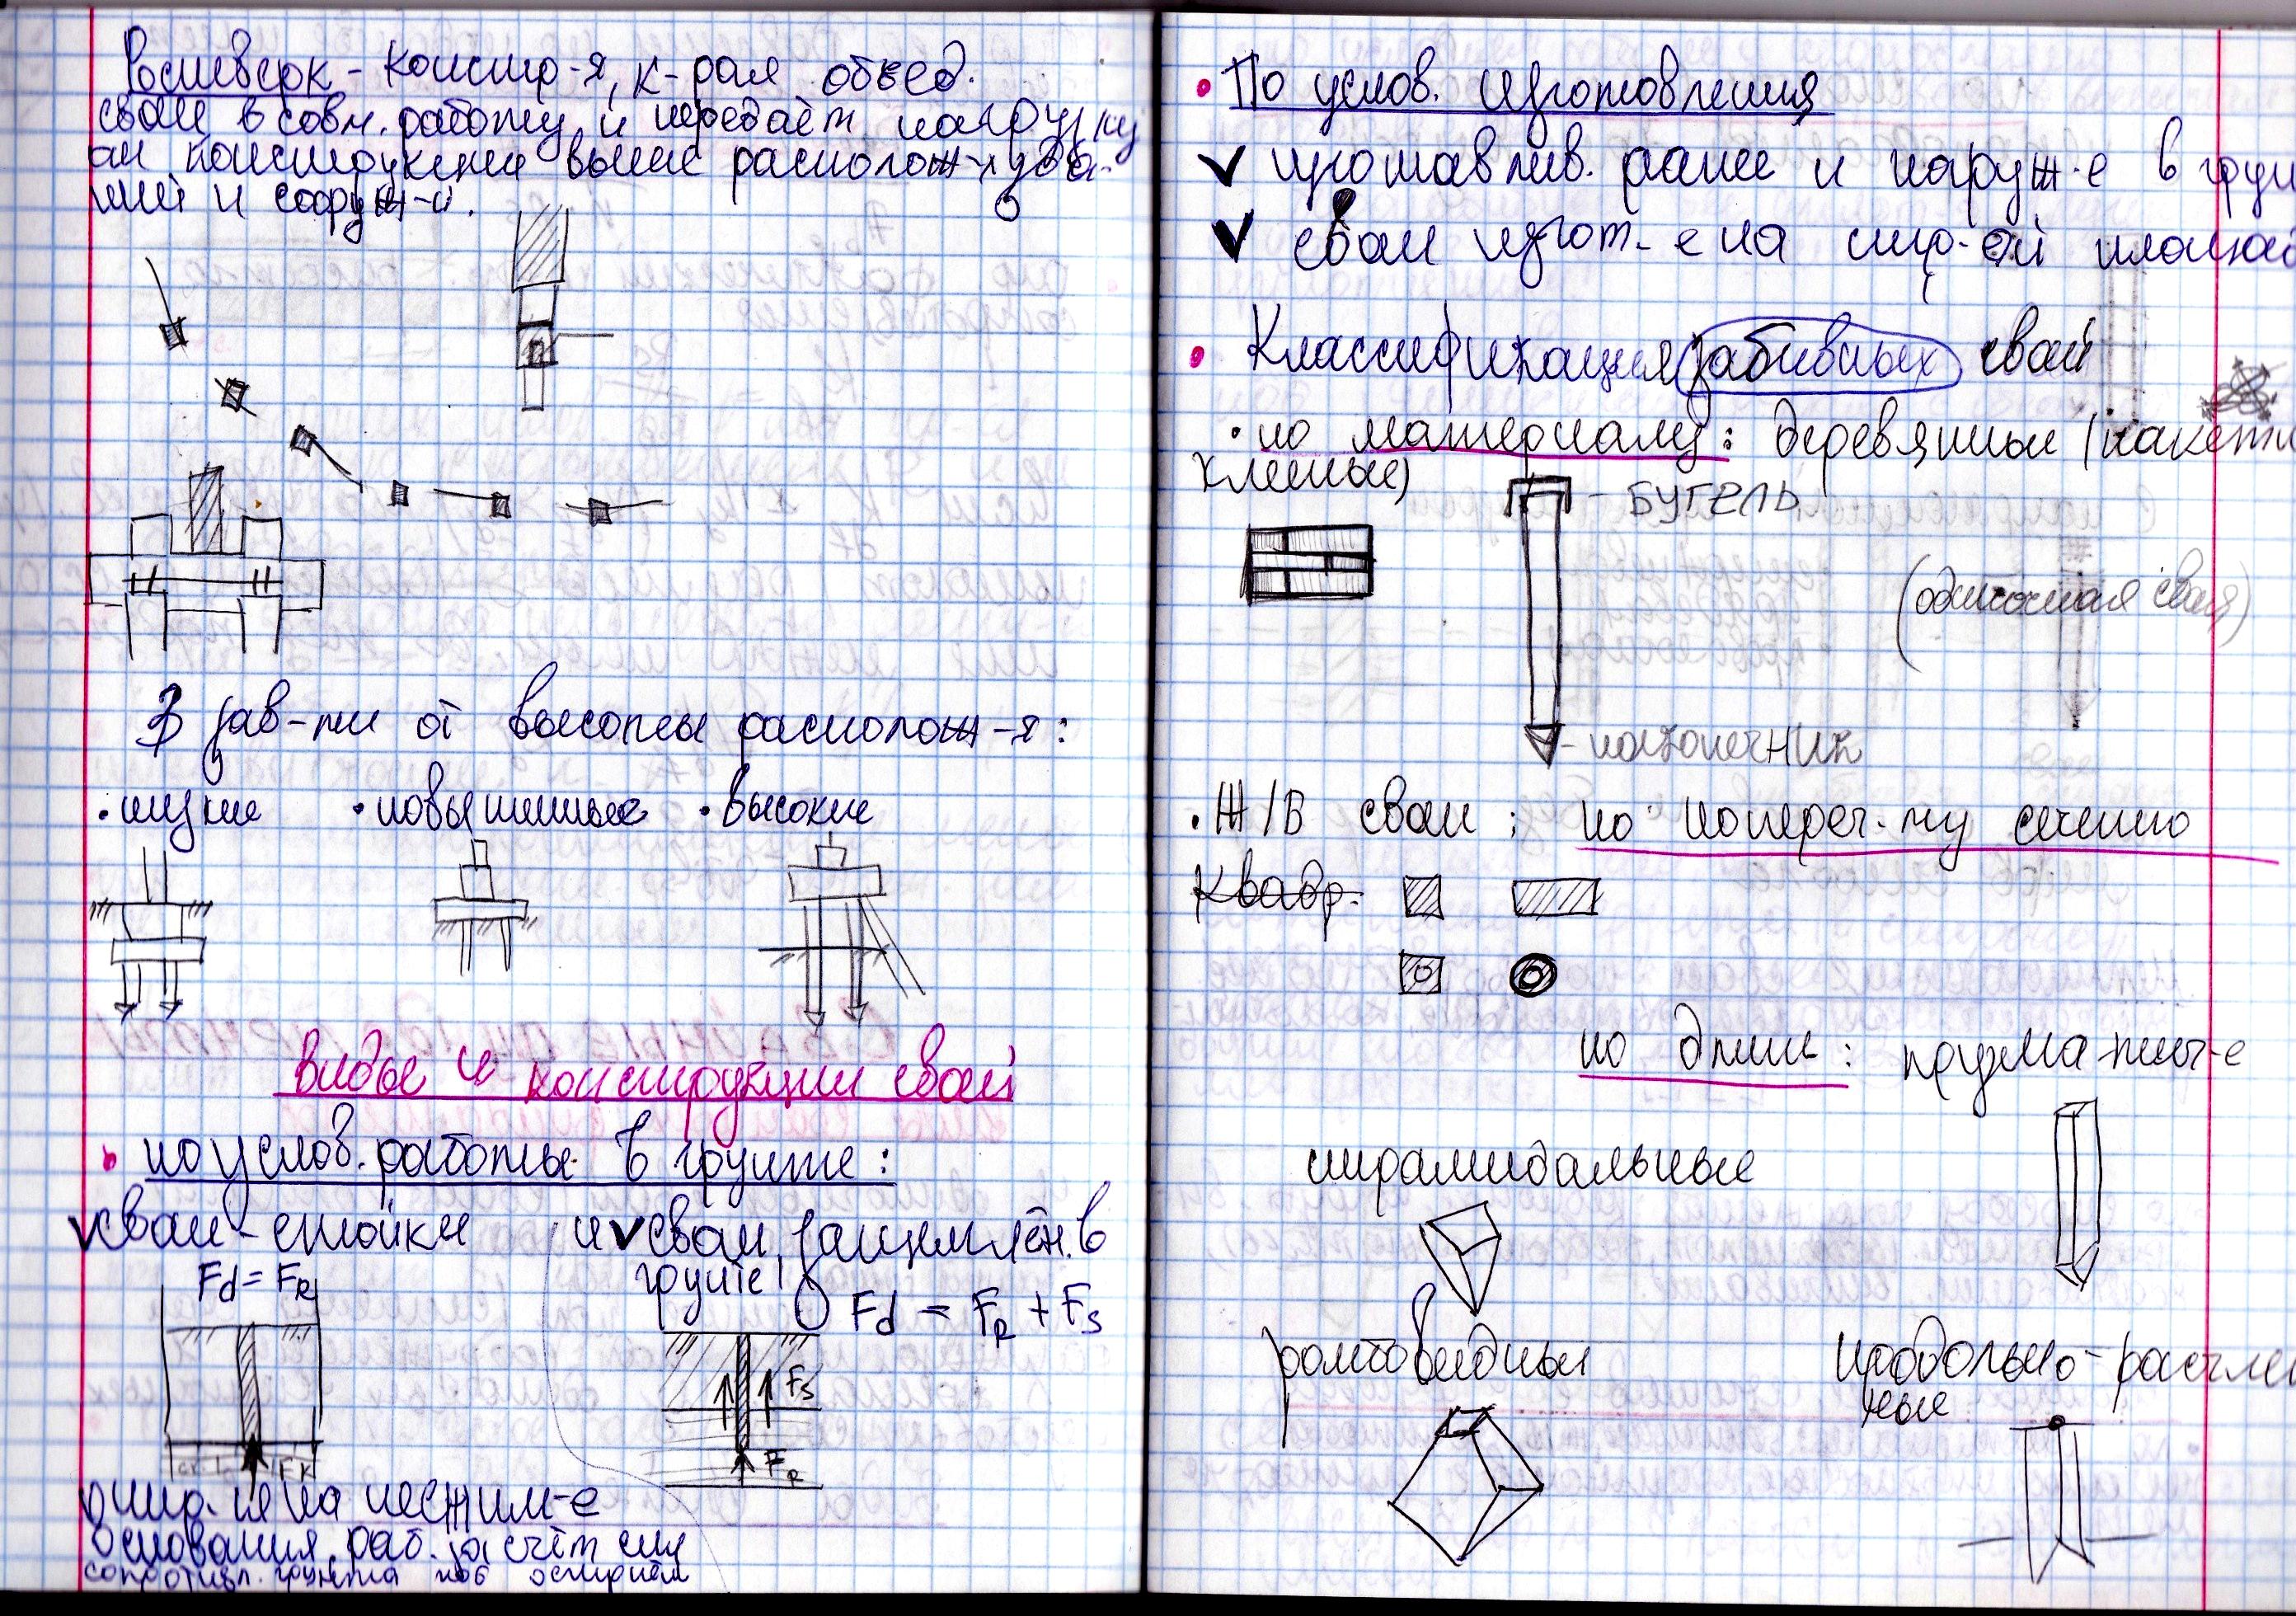 Ростверк - констр-я, к-рая объед.
сваи в совм. работу и передаёт нагрузку
от конструкций выше располож-х зда-
ний и сооруж-й.
В зав-ти от высоты располож-я:
• низкие • повышенные • высокие
Виды и конструкции свай
• по услов. работы в грунте:
✓ сваи-стойки и ✓ сваи, защемлён. в
грунте!
Fd = FR
Fd = FR + FS
FS
FR
FR
опир-ся на несжим-е
основания, раб. за счёт сил
сопротивл. грунта под остриём
• По услов. изготовления
✓ изготавлив. ранее и погруж-е в грун
✓ сваи изгот-е на стр-ой площад
• Классификация забивных свай
• по материалу: деревянные (пакетн
клееные)
- БУГЕЛЬ
(одиночная свая)
- наконечник
• Ж/Б сваи: по попереч-му сечению
Квадр.
по длине: призма-тич-е
пирамидальные
ромбовидные
продольно-расчле
ные